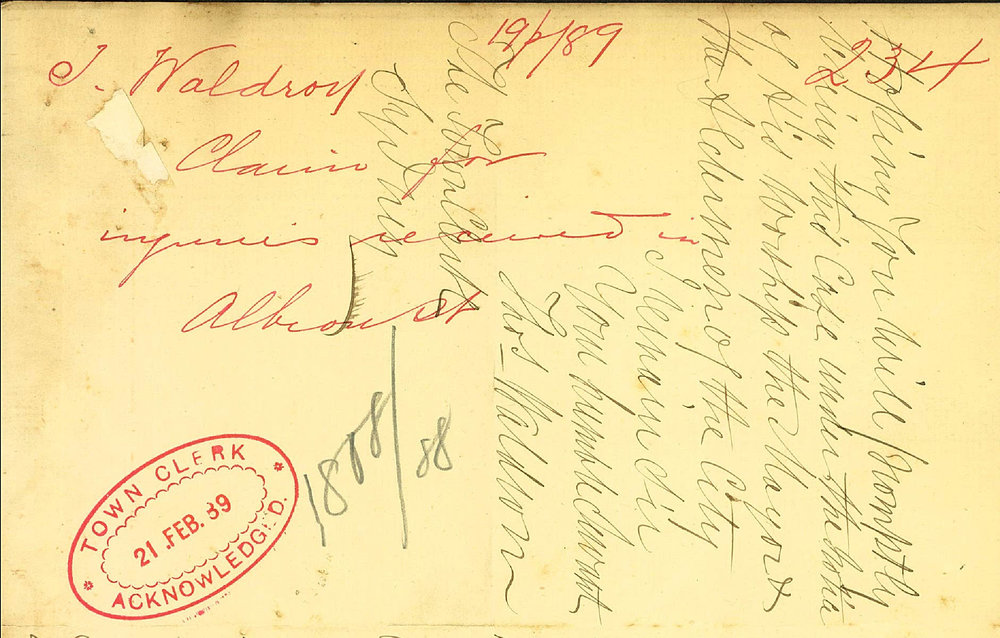 19/2/89
234
T. Waldron
Claim for
injuries received in
Albion St
1888/88
TOWN CLERK
21 .FEB. 89
ACKNOWLEDGED.
Hoping You will promptly
bring this Case under the notice
of His Worship the Mayor &
the Aldermen of the City
I remain Sir
Your humble Servant
Thos Waldron
The Town Clerk
Sydney